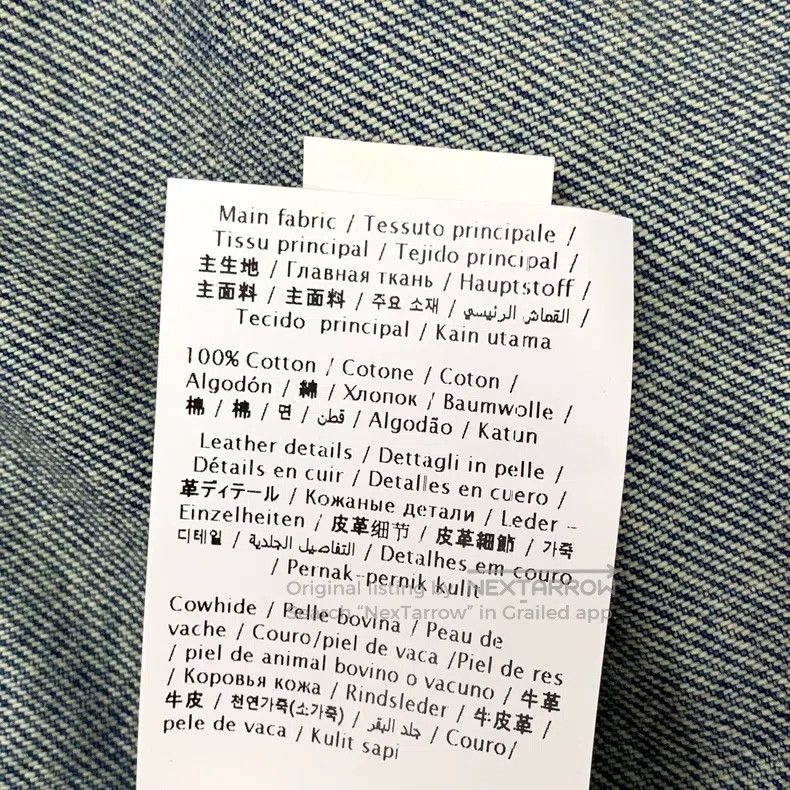 Main fabric / Tessuto principale /
Tissu principal / Tejido principal /
主生地 / Главная ткань / Hauptstoff /
主面料 / 主面料 / 주요 소재 / القماش الرئيسي /
Tecido principal / Kain utama
100% Cotton / Cotone / Coton /
Algodón / 綿 / Хлопок / Baumwolle /
棉 / 棉 / 면 / قطن / Algodão / Katun
Leather details / Dettagli in pelle /
Détails en cuir / Detalles en cuero /
革ディテール / Кожаные детали / Leder -
Einzelheiten / 皮革细节 / 皮革細節 / 가죽
디테일 / التفاصيل الجلدية / Detalhes em couro
/ Pernak-pernik kulit
Original listing by NEXTARROW
Search "NexTarrow" in Grailed app
Cowhide / Pelle bovina / Peau de
vache / Couro/piel de vaca /Piel de res
/ piel de animal bovino o vacuno / 牛革
/ Коровья кожа / Rindsleder / 牛皮革 /
牛皮 / 천연가죽(소가죽) / جلد البقر / Couro/
pele de vaca / Kulit sapi